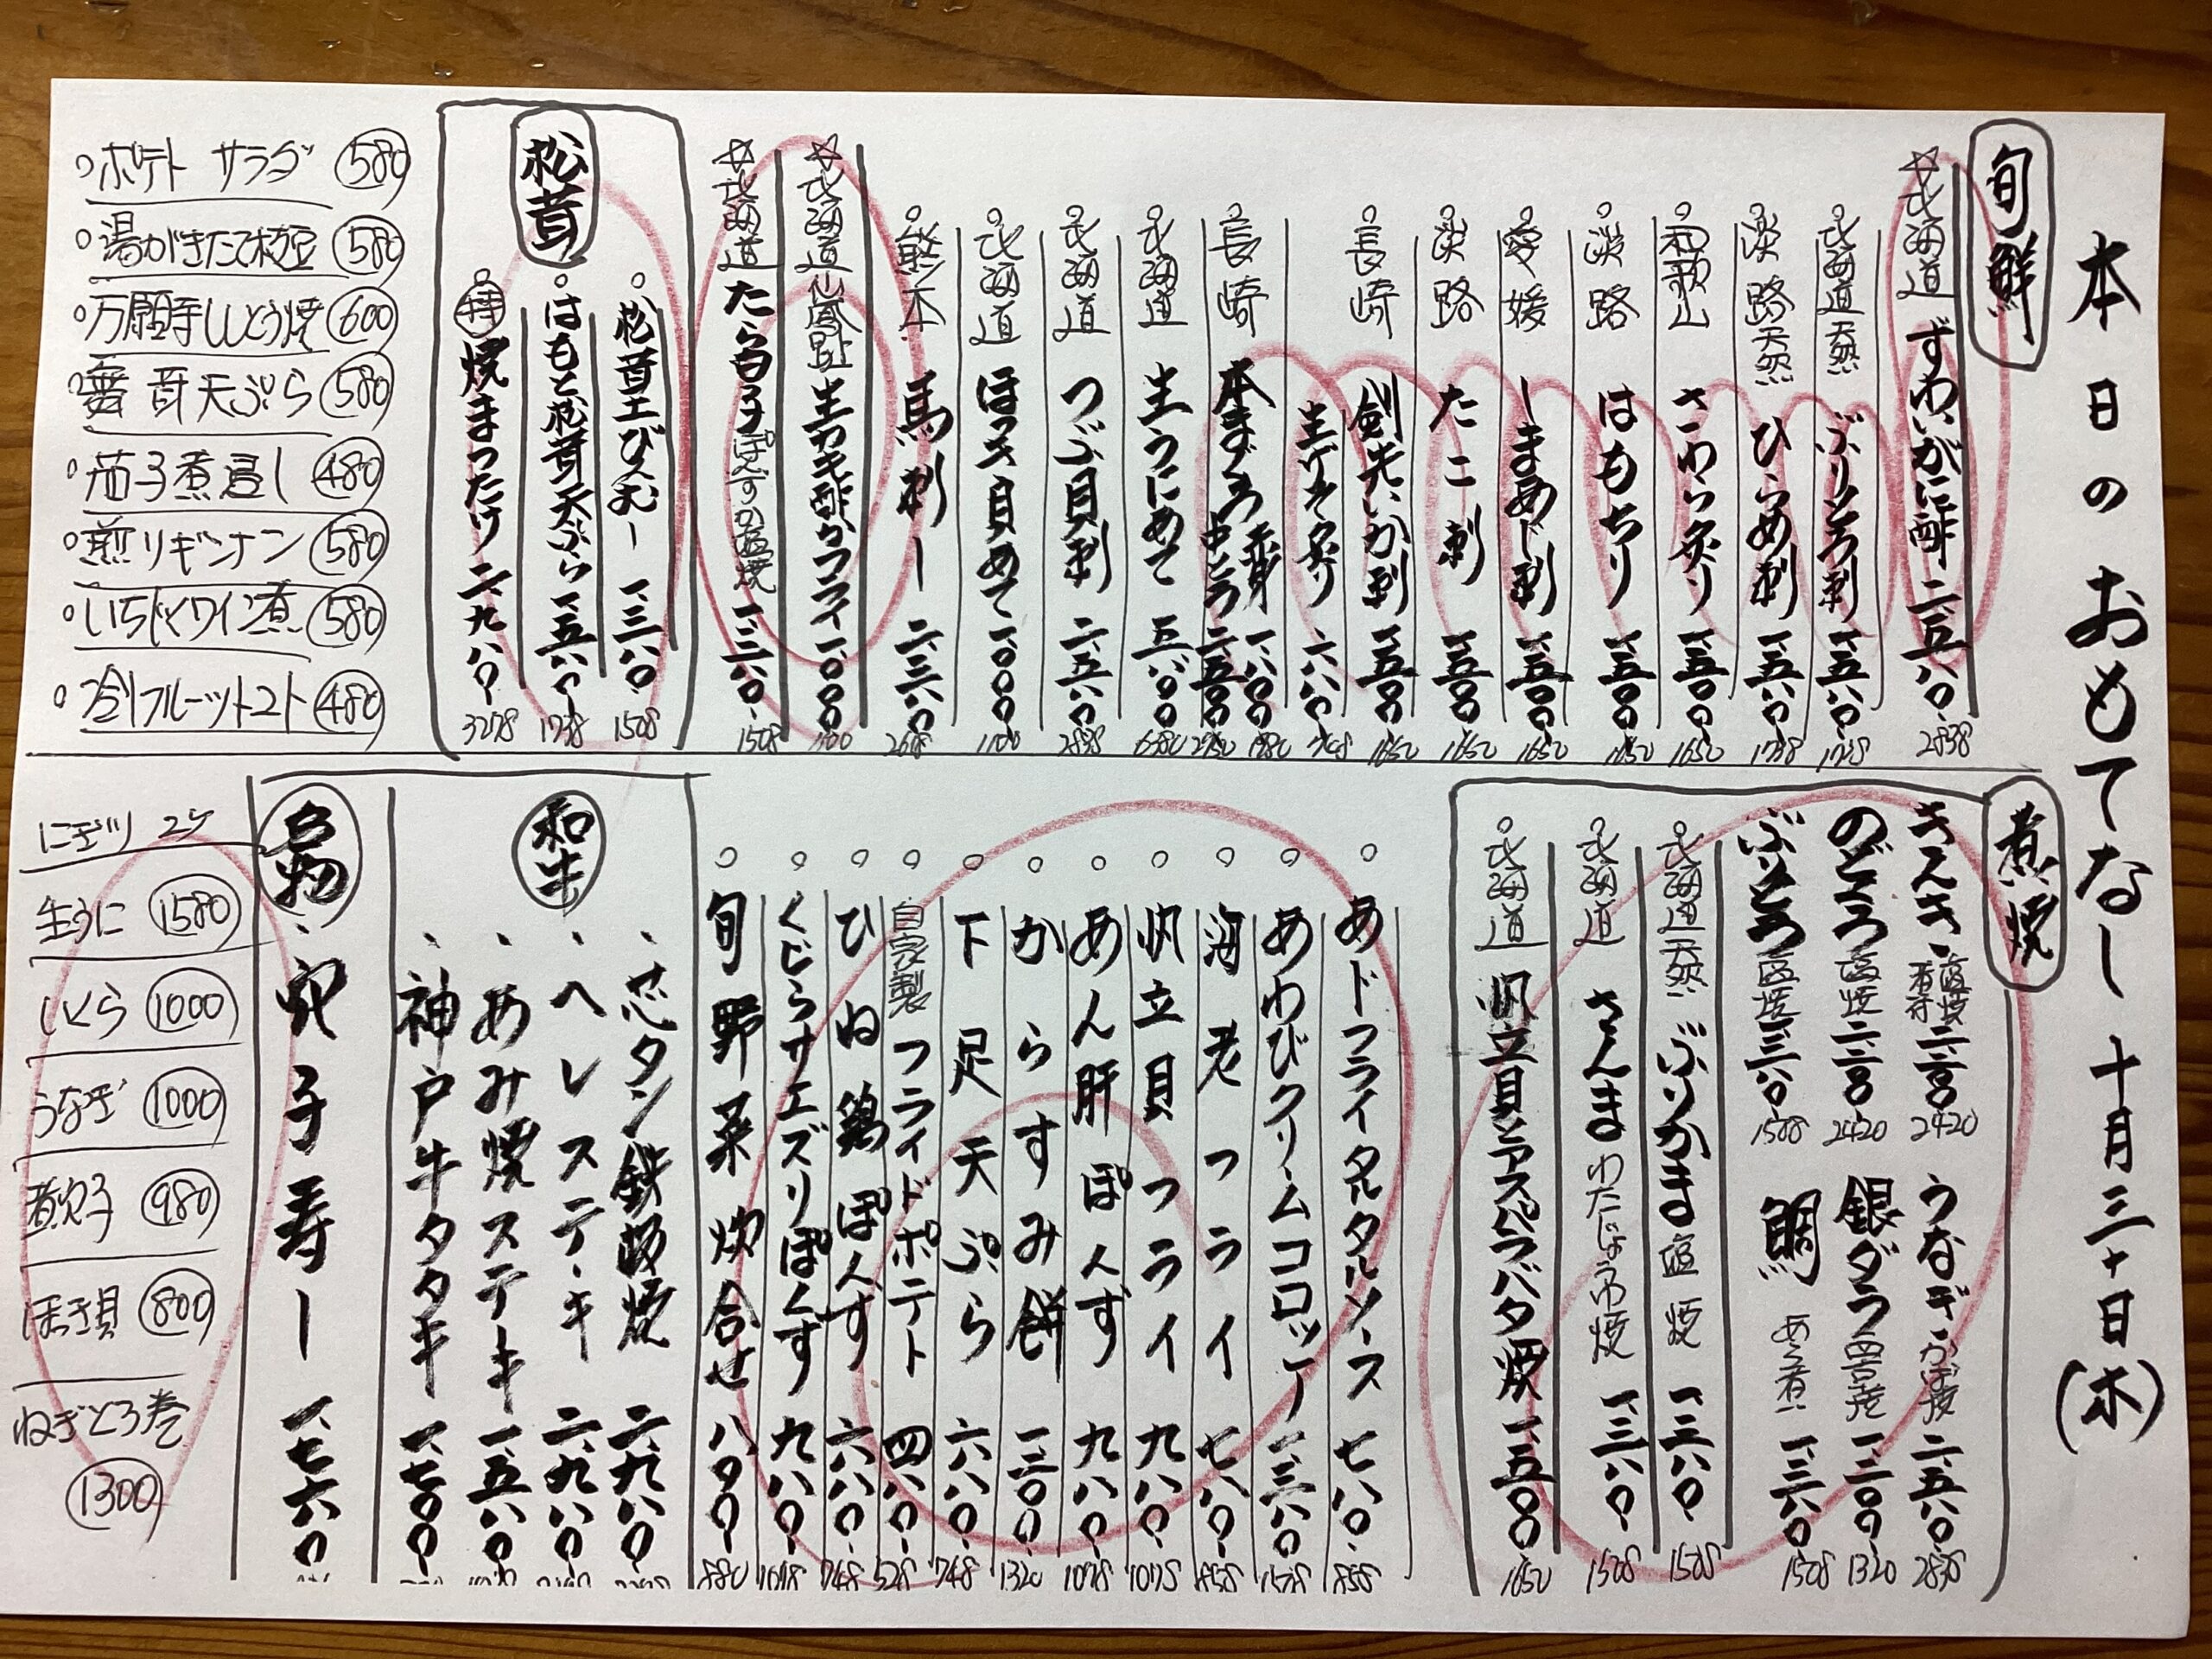 本日のおもてなし 十月三十日(木)
旬鮮
☆北海道 ずわいがに酢 二、五八〇 2838
北海道天然 ぶりとろ刺 一、五八〇 1738
淡路天然 ひらめ刺 一、五八〇 1738
和歌山 さわら炙り 一、五〇〇 1650
淡路 はもちり 一、五〇〇 1650
愛媛 しまあじ刺 一、五〇〇 1650
淡路 たこ刺 一、五〇〇 1650
長崎 剣先いか刺 一、五〇〇 1650
生げそ炙り 748
長崎 本まぐろ 赤身 一、八〇〇 1980
中とろ 二、五〇〇 2750
北海道 生うにめて 五、八〇〇 6380
北海道 つぶ貝刺 二、五八〇 2838
北海道 ほっき貝めて 一、〇〇〇 1100
熊本 馬刺し 二、三八〇 2618
☆北海道仙鳳趾 生カキ酢かフライ 一、〇〇〇 1100
☆北海道 たら白子 ぽんずか塩焼 一、三八〇 1508
松茸
松茸土びんむし 一、三八〇 1508
はもと松茸天ぷら 一、五八〇 1738
特 焼まつたけ 二、九八〇 3278
ポテト サラダ 580
湯がきたて枝豆 580
万願寺ししとう焼 600
舞茸天ぷら 580
茄子煮浸し 480
煎りギンナン 580
いちじくワイン煮 580
冷フルーツトマト 480
煮・焼
きんき 塩焼 煮付 二、二〇〇 2420
のどぐろ 塩焼 二、二〇〇 2420
ぶりとろ 塩焼 一、三八〇 1508
うなぎ かば焼 二、五八〇 2838
銀ダラ 西京焼 一、二〇〇 1320
鯛 あら煮 一、三八〇 1508
北海道天然 ぶりかま 塩焼 一、三八〇 1508
北海道 さんま わたじょうゆ焼 一、三八〇 1508
北海道 帆立貝とアスパラバタ焼 一、五〇〇 1650
あじフライタルタルソース 七八〇 858
あわびクリームコロッケ 一、三八〇
海老フライ 七八〇 858
帆立貝フライ 九八〇 1078
あん肝ぽんず 九八〇 1078
からすみ餅 一、二〇〇 1320
下足天ぷら 六八〇 748
自家製 フライドポテト 四八〇 528
ひね鶏ぽんず 六八〇 748
くじらサエズリぽんず 九八〇 1078
旬野菜炊合せ 八〇〇 880
和牛
芯タン鉄板焼 二、九八〇
ヘレステーキ 二、九八〇
あみ焼ステーキ 一、五八〇
神戸牛タタキ 一、七〇〇
名物
穴子寿し 一、七六〇
にぎり 2ケ
生うに 1580
いくら 1000
うなぎ 1000
煮穴子 980
ほっき貝 800
ねぎとろ巻 1300